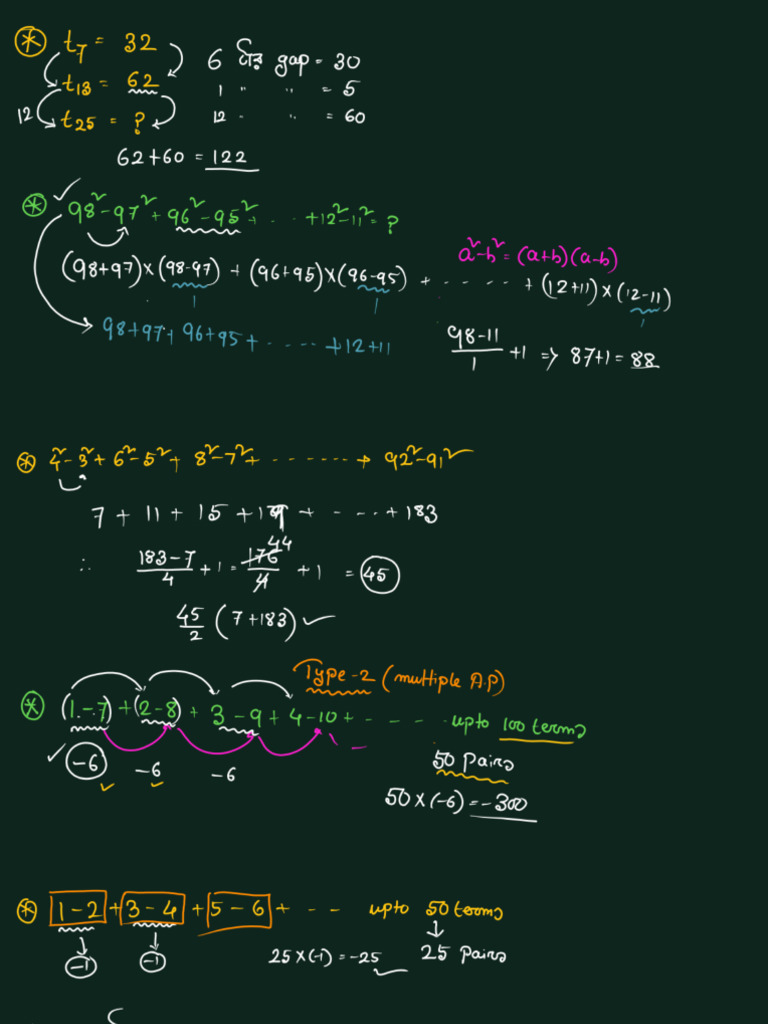 * t₇ = 32
t₁₃ = 62
12 t₂₅ = ?
6 টার gap = 30
1 " " = 5
12 " " = 60
62+60 = 122
* 98²-97²+96²-95²+ .. .. +12²-11² = ?
a²-b² = (a+b)(a-b)
(98+97)×(98-97) + (96+95)×(96-95) + - ---- + (12+11)×(12-11)
1 1 1
98+97+ 96+95+ ..... +12+11
98-11/1 +1 => 87+1 = 88
* 4²-3²+6²-5²+ 8²-7²+ ------→ 92²-91²
7 + 11 + 15 + 19 + - ... + 183
∴ 183-7/4 +1 = 176/4 44 + 1 = 45
45/2 (7+183) ✓
Type-2 (multiple A.P)
* (1-7) +(2-8) + 3-9 + 4-10 + - - - - upto 100 terms
✓ -6 -6 -6
50 Pairs
50×(-6) = -300
* 1-2 + 3-4 + 5-6 + - - - upto 50 terms
↓
-1 -1 25×(-1) = -25 25 Pairs